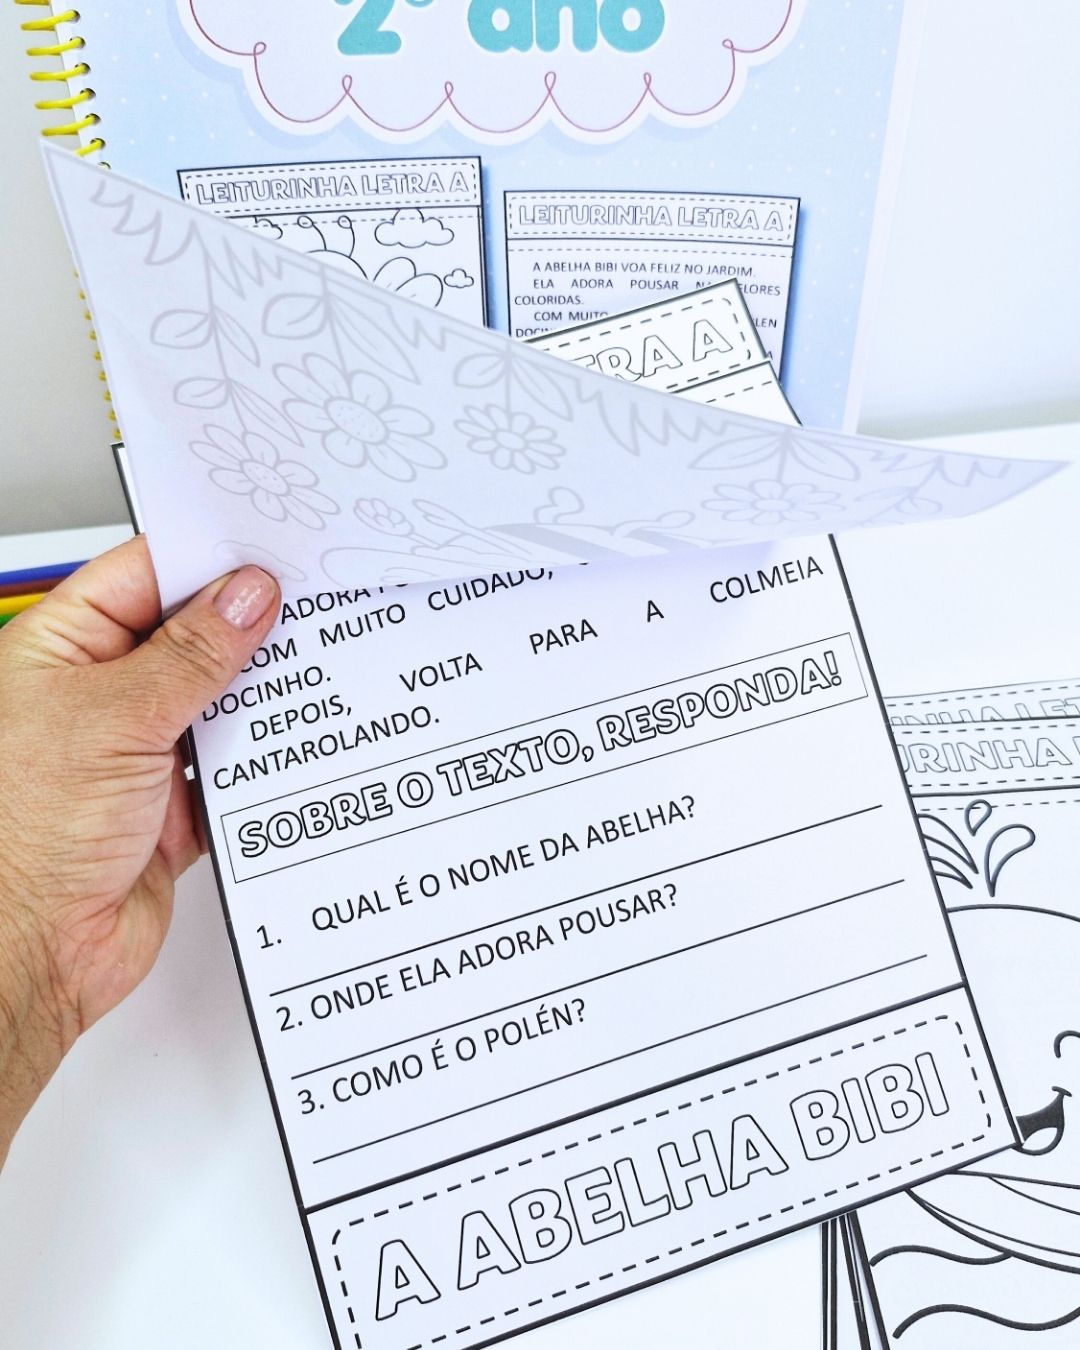 2º ano
LEITURINHA LETRA A
LEITURINHA LETRA A
A ABELHA BIBI VOA FELIZ NO JARDIM.
ELA ADORA POUSAR FLORES
COLORIDAS.
COM MUITO
TRA A
ADORA
COM MUITO CUIDADO,
DOCINHO.
DEPOIS, VOLTA PARA A COLMEIA
CANTAROLANDO.
SOBRE O TEXTO, RESPONDA!
1. QUAL É O NOME DA ABELHA?
2. ONDE ELA ADORA POUSAR?
3. COMO É O POLÉN?
A ABELHA BIBI